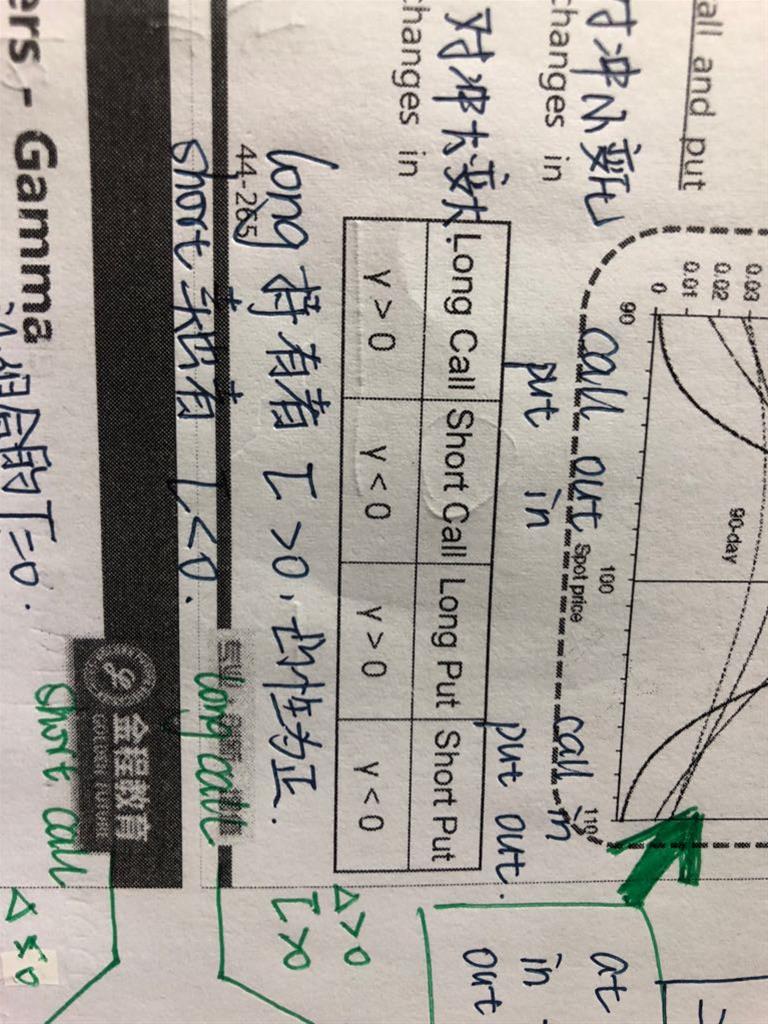 all and put
对冲从变化
changes in
对冲大变大.
changes in
0.03
0.02
0.01
0
90
100
110
90-day
Spot price
call out
call in
put in
put out.
Long Call Short Call Long Put Short Put
γ > 0 γ < 0 γ > 0 γ < 0
44-265
long 持有者 Γ >0, 凸性为正.
short 持有者 Γ<0.
ers - Gamma
合的Γ=0.
金程教育
GOLDEN FUTURE
long call
short call
Δ>0
Γ>0
at
in
out